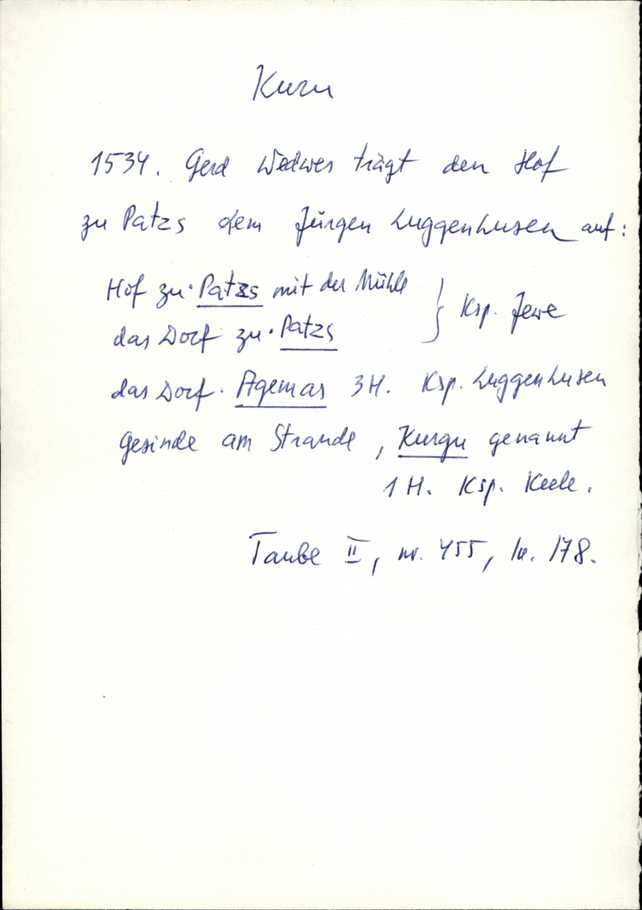 Kuru
1534. Gerd Wedwes trägt den Hof
zu Patzs dem Jürgen Luggenhusen auf:
Hof zu Patzs mit der Mühle
das Dorf zu Patzs } Ksp. Jewe
das Dorf Agemas 3H. Ksp. Luggenhusen
Gesinde am Strande, Kurgu genannt
1 H. Ksp.
Taube II, nr. 455, 178.